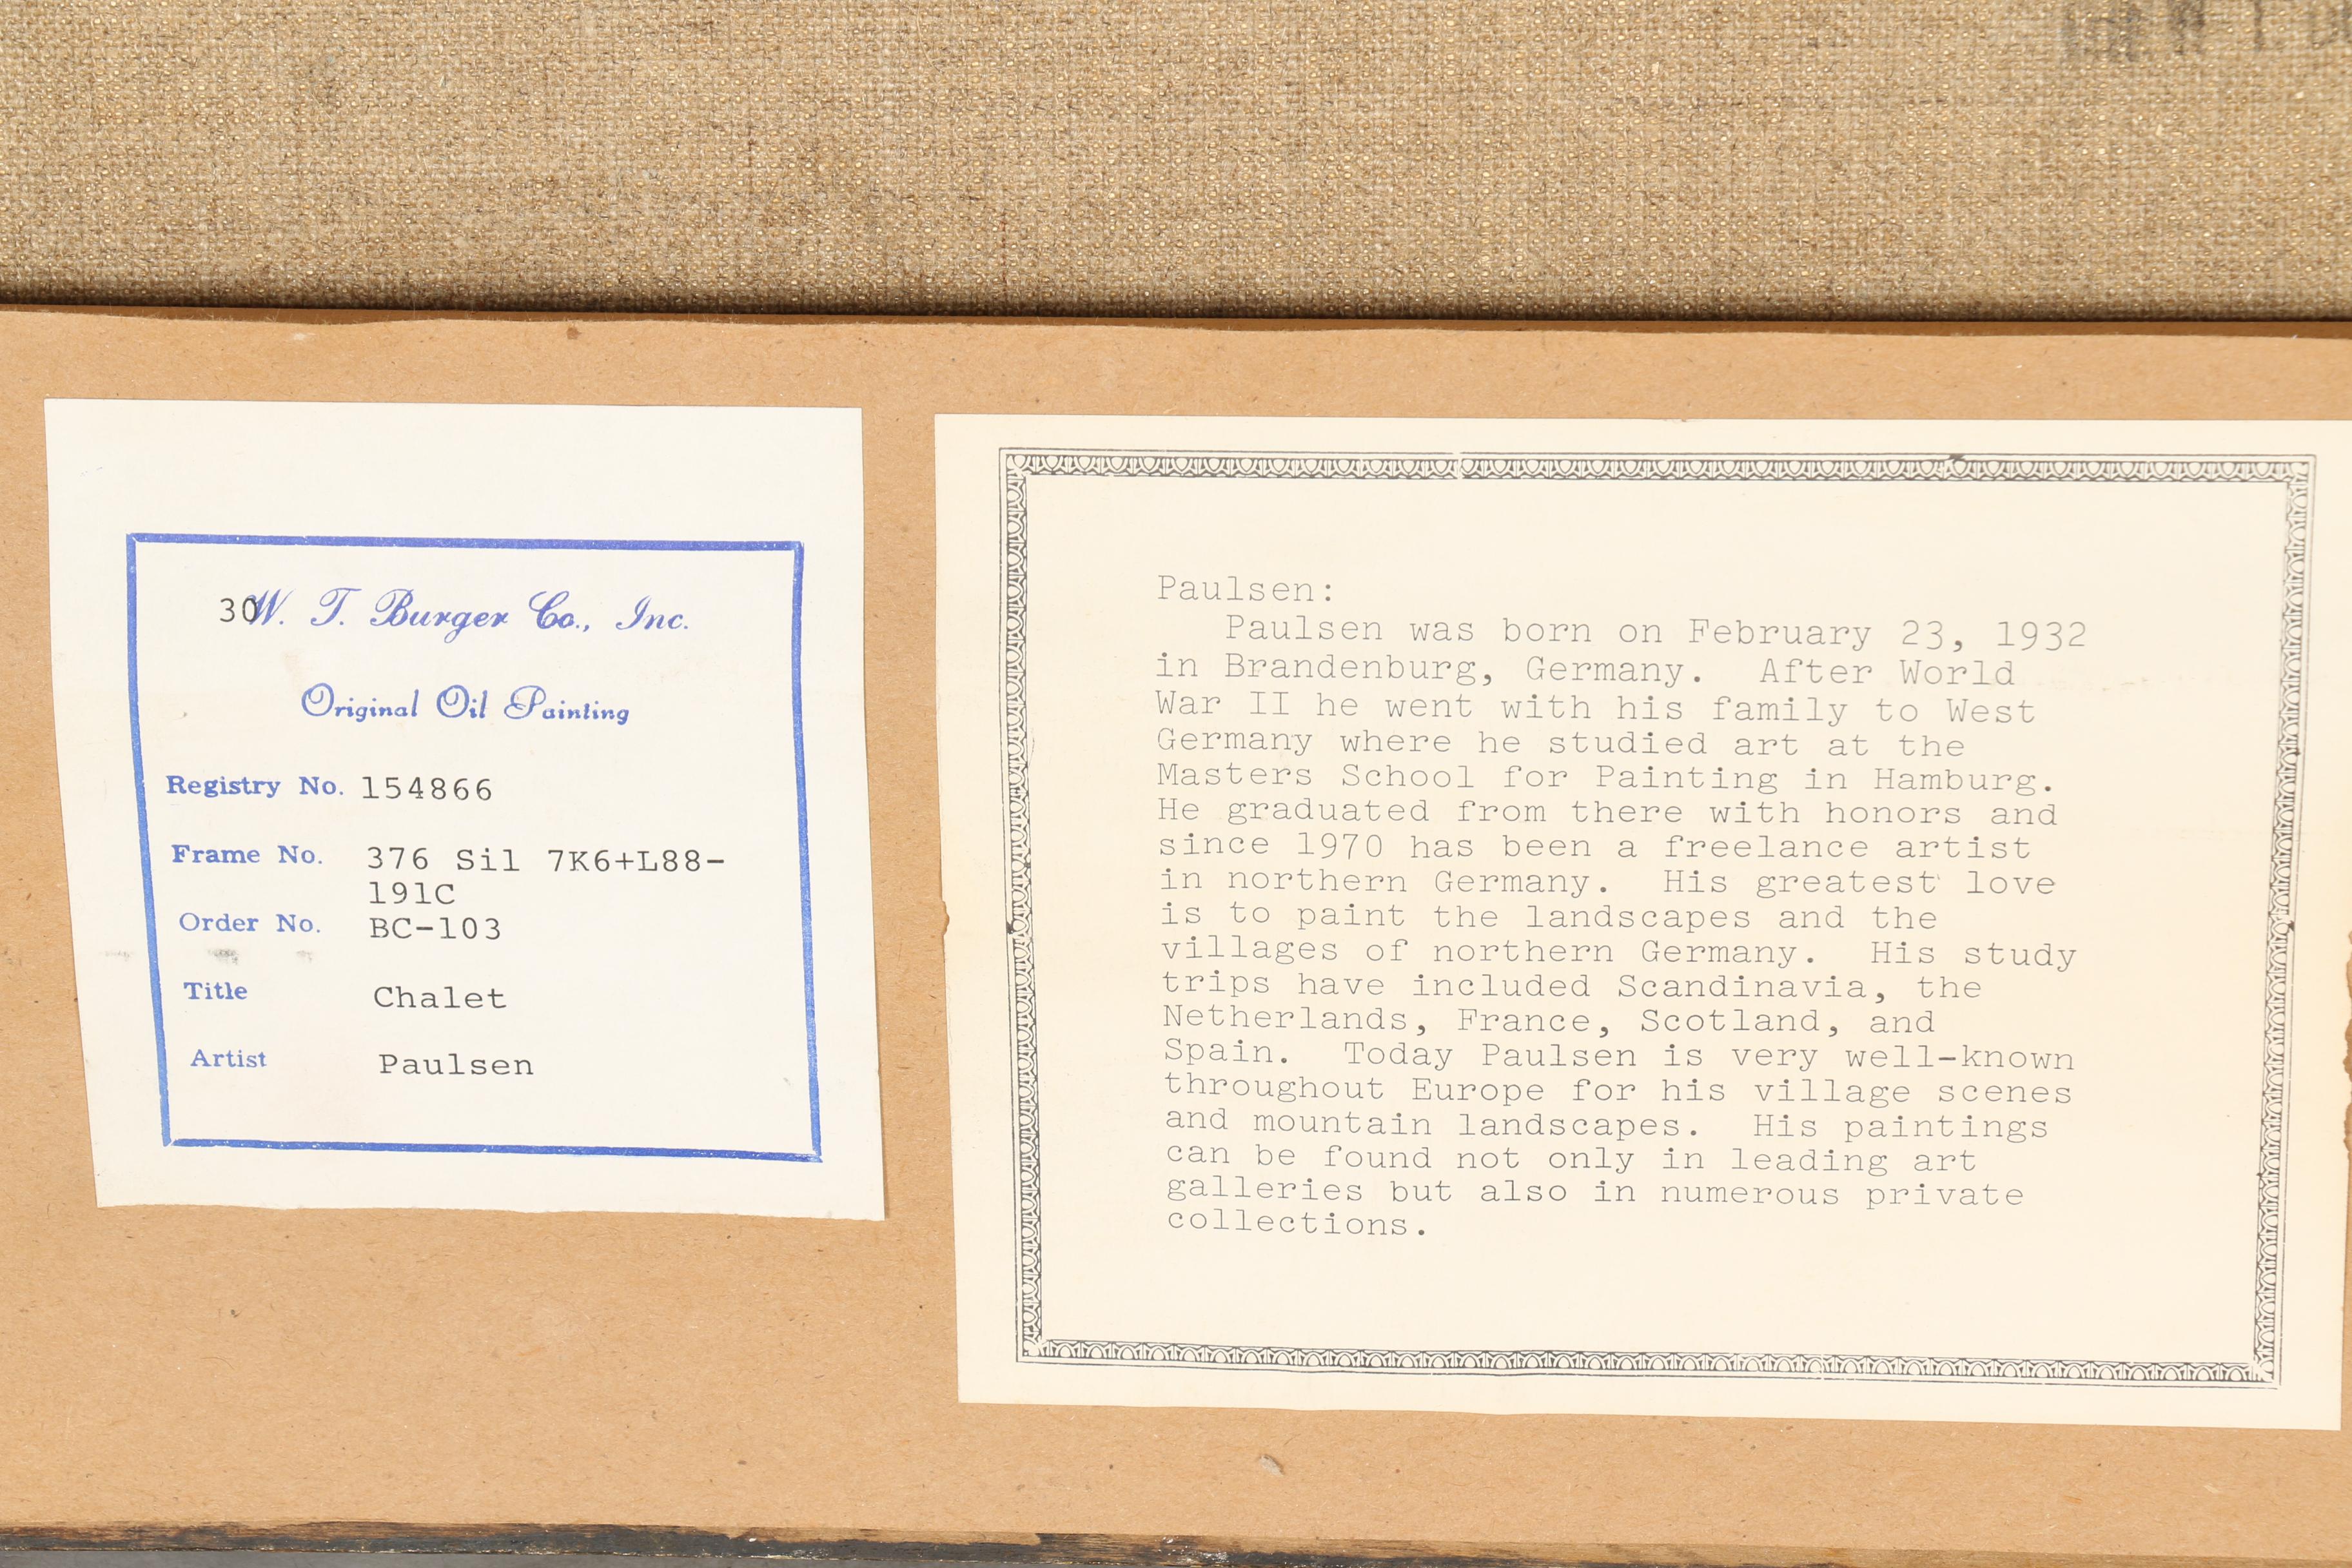 30W. T. Burger Co., Inc.
Original Oil Painting
Registry No. 154866
Frame No. 376 Sil 7K6+L88-
191C
Order No. BC-103
Title Chalet
Artist Paulsen
Paulsen:
Paulsen was born on February 23, 1932
in Brandenburg, Germany. After World
War II he went with his family to West
Germany where he studied art at the
Masters School for Painting in Hamburg.
He graduated from there with honors and
since 1970 has been a freelance artist
in northern Germany. His greatest love
is to paint the landscapes and the
villages of northern Germany. His study
trips have included Scandinavia, the
Netherlands, France, Scotland, and
Spain. Today Paulsen is very well-known
throughout Europe for his village scenes
and mountain landscapes. His paintings
can be found not only in leading art
galleries but also in numerous private
collections.